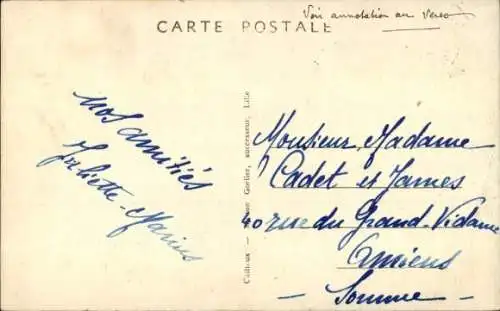 Voir annotation au verso
CARTE POSTALE
nos amitiés
Juliette - Marius
Cailleux - Gorlier, successeur, Lille
Monsieur, Madame
Cadet et James
40 rue du Grand-Vidame
Amiens
- Somme -